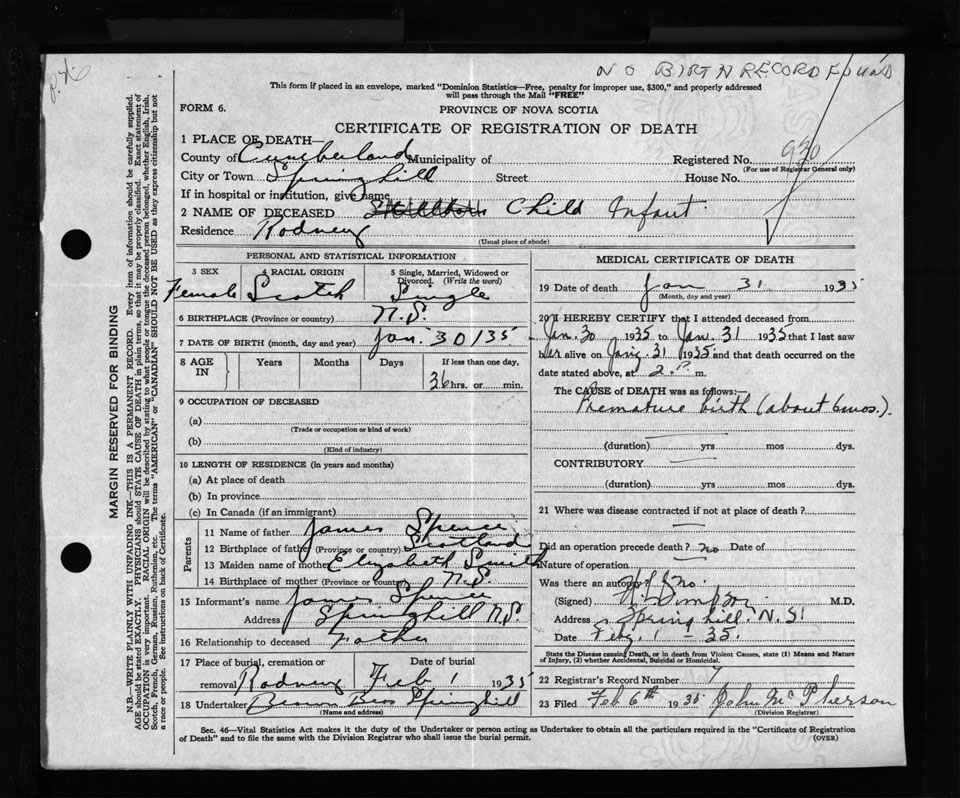 NO BIRTH RECORD FOUND
This form if placed in an envelope, marked "Dominion Statistics—Free, penalty for improper use, $300," and properly addressed
will pass through the Mail "FREE"
FORM 6.
PROVINCE OF NOVA SCOTIA
CERTIFICATE OF REGISTRATION OF DEATH
1 PLACE OF DEATH—
County of Cumberland Municipality of
Registered No. 930
(For use of Registrar General only)
City or Town Springhill Street House No.
If in hospital or institution, give name
2 NAME OF DECEASED Stillborn Child Infant
Residence Rodney
(Usual place of abode)
PERSONAL AND STATISTICAL INFORMATION
3 SEX 4 RACIAL ORIGIN 5 Single, Married, Widowed or
Divorced. (Write the word)
Female Scotch Single
6 BIRTHPLACE (Province or country) N.S.
7 DATE OF BIRTH (month, day and year) Jan 30/35
8 AGE IN Years Months Days If less than one day,
36 hrs. or min.
9 OCCUPATION OF DECEASED
(a)
(Trade or occupation or kind of work)
(b)
(Kind of industry)
10 LENGTH OF RESIDENCE (in years and months)
(a) At place of death
(b) In province
(c) In Canada (if an immigrant)
Parents
11 Name of father James Spence
12 Birthplace of father (Province or country) Scotland
13 Maiden name of mother Elizabeth Smith
14 Birthplace of mother (Province or country) N.S.
15 Informant's name James Spence
Address Springhill N.S.
16 Relationship to deceased Father
17 Place of burial, cremation or Date of burial
removal Rodney Feb 1 1935
18 Undertaker Bros Springhill
(Name and address)
MEDICAL CERTIFICATE OF DEATH
19 Date of death Jan 31 1935
(Month, day and year)
20 I HEREBY CERTIFY that I attended deceased from
Jan. 30 1935 to Jan. 31 1935 that I last saw
her alive on 31 1935 and that death occurred on
date stated above, at 2 P m.
The CAUSE of DEATH was as follows:—
Premature birth (about 6 mos.).
(duration) yrs mos dys.
CONTRIBUTORY
(duration) yrs mos dys.
21 Where was disease contracted if not at place of death?
Did an operation precede death? no Date of
Nature of operation
Was there an autopsy? No.
(Signed) Simpson M.D.
Address Springhill. N.S.
Date Feby. 1 - 35.
State the Disease causing Death, or in death from Violent Causes, state (1) Means and Nature
of Injury, (2) whether Accidental, Suicidal or Homicidal.
22 Registrar's Record Number 7
23 Filed Feb 6th 1935 John McPherson
(Division Registrar)
Sec. 46—Vital Statistics Act makes it the duty of the Undertaker or person acting as Undertaker to obtain all the particulars required in the "Certificate of Registration
of Death" and to file the same with the Division Registrar who shall issue the burial permit.
(OVER)
MARGIN RESERVED FOR BINDING
N.B.—WRITE PLAINLY WITH UNFADING INK—THIS IS A PERMANENT RECORD. Every item of information should be carefully supplied.
AGE should be stated EXACTLY. PHYSICIANS should STATE CAUSE OF DEATH in plain terms, so that it may be properly classified. Exact statement of
OCCUPATION is very important. RACIAL ORIGIN will be described by stating to what people or tongue the deceased person belonged, whether English, Irish,
Scotch, French, German, Russian, Ruthenian, etc. The terms "AMERICAN" or "CANADIAN" SHOULD NOT BE USED as they express citizenship but not
a race or people. See instructions on back of Certificate.